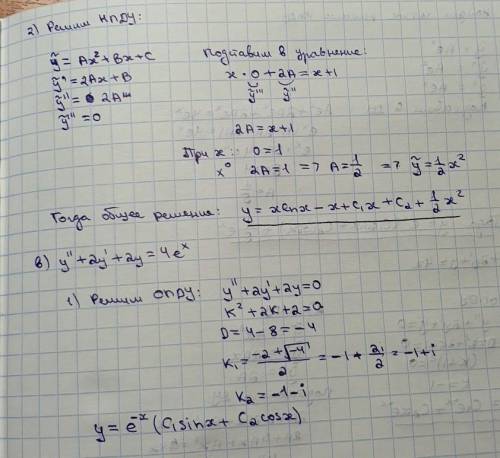 2) Решим НПДУ:
ỹ = Ax² + Bx + C
ỹ' = 2Ax + B
ỹ'' = 2A
ỹ''' = 0
Подставим в уравнение:
x · 0 + 2A = x + 1
ỹ''' ỹ''
2A = x + 1
При x: 0 = 1
x⁰ 2A = 1 => A = 1/2 => ỹ = 1/2 x²
Тогда общее решение: y = xlnx - x + C₁x + C₂ + 1/2 x²
в) y'' + 2y' + 2y = 4eˣ
1) Решим ОПДУ: y'' + 2y' + 2y = 0
K² + 2K + 2 = 0
D = 4 - 8 = -4
K₁ = (-2 + √-4)/2 = -1 + 2i/2 = -1 + i
K₂ = -1 - i
y = e⁻ˣ (C₁sinx + C₂cosx)